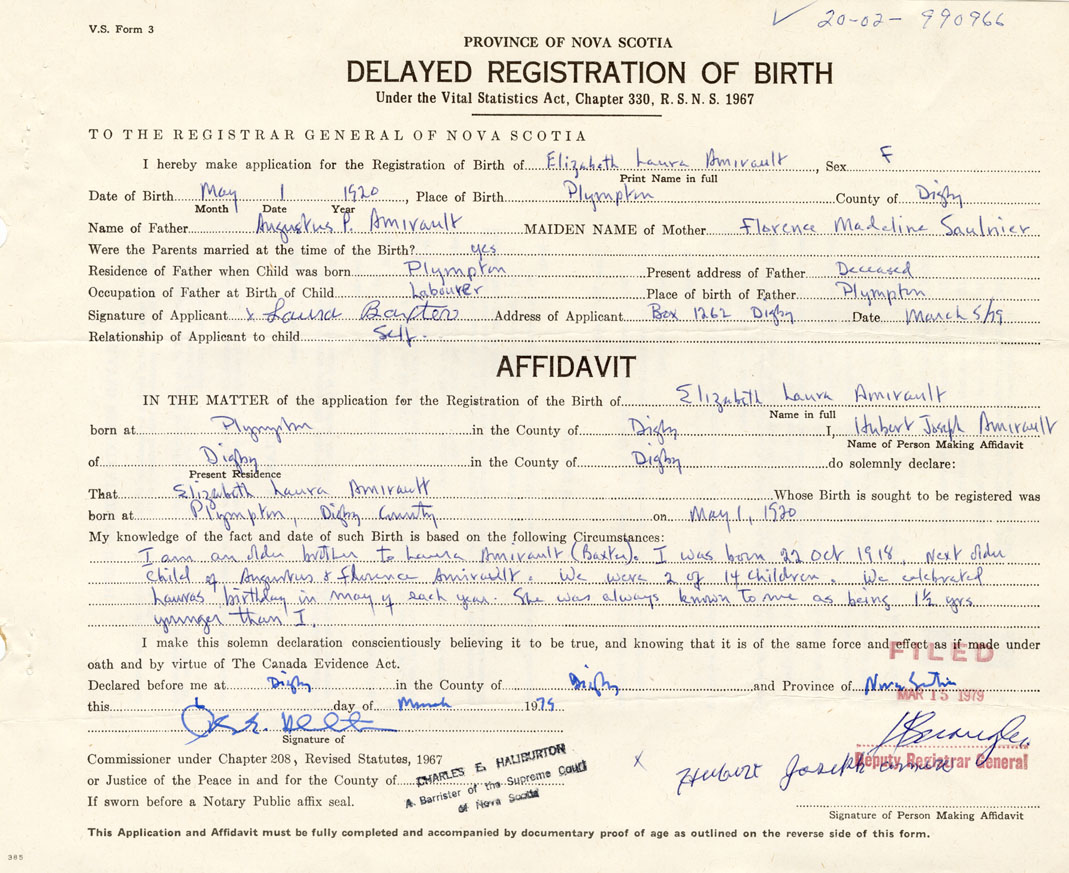 V.S. Form 3
✓ 20-02- 990966
PROVINCE OF NOVA SCOTIA
DELAYED REGISTRATION OF BIRTH
Under the Vital Statistics Act, Chapter 330, R. S. N. S. 1967
TO THE REGISTRAR GENERAL OF NOVA SCOTIA
I hereby make application for the Registration of Birth of Elizabeth Laura Amirault, Sex F
Print Name in full
Date of Birth May 1 1920, Place of Birth Plympton County of Digby
Month Date Year
Name of Father Angustus P. Amirault MAIDEN NAME of Mother Florence Madeline Saulnier
Were the Parents married at the time of the Birth? yes
Residence of Father when Child was born Plympton Present address of Father Deceased
Occupation of Father at Birth of Child Labourer Place of birth of Father Plympton
Signature of Applicant x Laura Baxter Address of Applicant Box 1262 Digby Date March 5/79
Relationship of Applicant to child Self.
AFFIDAVIT
IN THE MATTER of the application for the Registration of the Birth of Elizabeth Laura Amirault
Name in full
born at Plympton in the County of Digby I, Hubert Joseph Amirault
Name of Person Making Affidavit
of Digby in the County of Digby do solemnly declare:
Present Residence
That Elizabeth Laura Amirault Whose Birth is sought to be registered was
born at Plympton, Digby County on May 1, 1920
My knowledge of the fact and date of such Birth is based on the following Circumstances:
I am an older brother to Laura Amirault (Baxter). I was born 22 Oct 1918, Next older
child of Angustus & Florence Amirault. We were 2 of 14 children. We celebrated
Lauras birthday in May of each year. She was always known to me as being 1½ yrs
younger than I.
I make this solemn declaration conscientiously believing it to be true, and knowing that it is of the same force and effect as if made under
oath and by virtue of The Canada Evidence Act.
FILED
Declared before me at Digby in the County of Digby and Province of Nova Scotia
MAR 15 1979
this day of March 1979
Signature of
Commissioner under Chapter 208, Revised Statutes, 1967
Deputy Registrar General
or Justice of the Peace in and for the County of
CHARLES E. HALIBURTON
A Barrister of the Supreme Court
of Nova Scotia
x Hubert Joseph
If sworn before a Notary Public affix seal.
Signature of Person Making Affidavit
This Application and Affidavit must be fully completed and accompanied by documentary proof of age as outlined on the reverse side of this form.
385